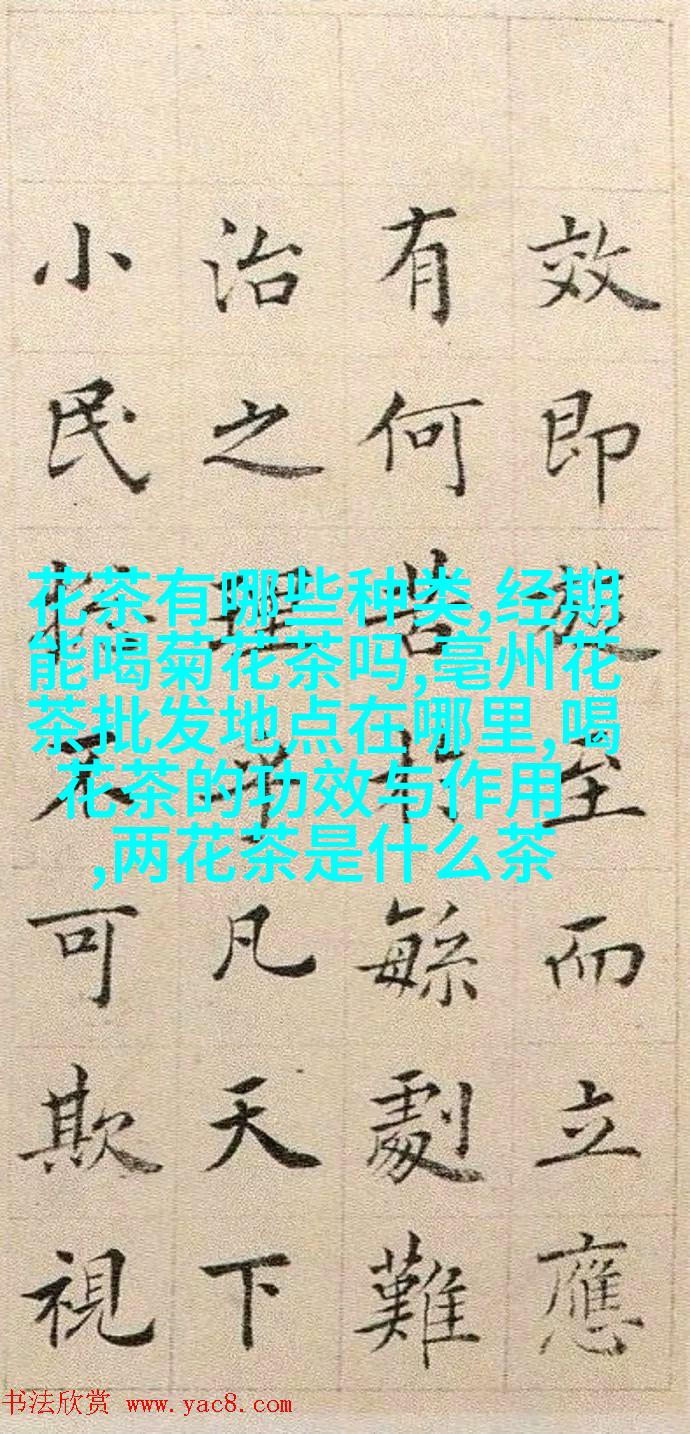 效即旋至而立應
有何苦於繇劇難
治之理乎凡天下
小民終不可欺視
花茶有哪些种类,经期
能喝菊花茶吗,亳州花
茶批发地点在哪里,喝
花茶的功效与作用
,两花茶是什么茶
书法欣赏 www.yac8.com